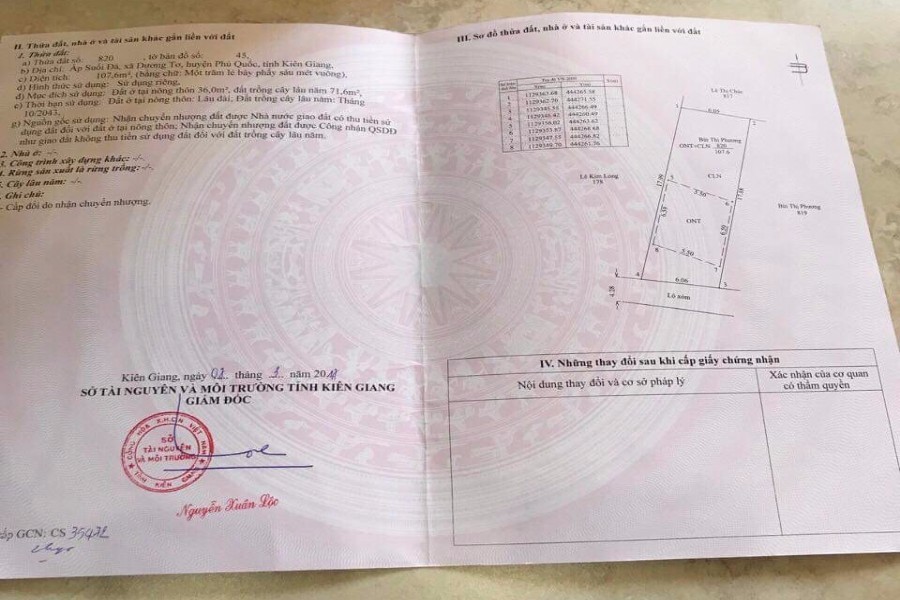 II. Thửa đất, nhà ở và tài sản khác gắn liền với đất
1. Thửa đất:
a) Thửa đất số: 820 , tờ bản đồ số: 45,
b) Địa chỉ: Ấp Suối Đá, xã Dương Tơ, huyện Phú Quốc, tỉnh Kiên Giang,
c) Diện tích: 107,6m², (bằng chữ: Một trăm lẻ bảy phẩy sáu mét vuông),
d) Hình thức sử dụng: Sử dụng riêng,
đ) Mục đích sử dụng: Đất ở tại nông thôn 36,0m², đất trồng cây lâu năm 71,6m²,
e) Thời hạn sử dụng: Đất ở tại nông thôn: Lâu dài; Đất trồng cây lâu năm: Tháng
10/2043,
g) Nguồn gốc sử dụng: Nhận chuyển nhượng đất được Nhà nước giao đất có thu tiền sử
dụng đất đối với đất ở tại nông thôn; Nhận chuyển nhượng đất được Công nhận QSDĐ
như giao đất không thu tiền sử dụng đất đối với đất trồng cây lâu năm.
2. Nhà ở: -/-
3. Công trình xây dựng khác: -/-
4. Rừng sản xuất là rừng trồng: -/-
5. Cây lâu năm: -/-
Ghi chú:
- Cấp đổi do nhận chuyển nhượng.
Kiên Giang, ngày 02.. tháng 1.. năm 2018
SỞ TÀI NGUYÊN VÀ MÔI TRƯỜNG TỈNH KIÊN GIANG
GIÁM ĐỐC
CỘNG HÒA X.H.C.N VIỆT NAM
SỞ
TÀI NGUYÊN
VÀ MÔI TRƯỜNG
TỈNH KIÊN GIANG
Nguyễn Xuân Lộc
cấp GCN: CS 35471
III. Sơ đồ thửa đất, nhà ở và tài sản khác gắn liền với đất
1 1129363.08 444265.58
2 1129362.70 444271.55
3 444266.49
4 444260.49
5 444263.62
6 444268.68
7 444266.82
8 1129349.70 444261.36
Lê Thị Chúc
817
1 6.05 2
Bùi Thị Phương
ONT+CLN 820
107.6
CLN
Lê Kim Long
178
17.98
5 5.50 6
17.98
Bùi Thị Phương
819
6.55
ONT
6.50
8 5.50 7
4 6.06 3
4.28
Lộ xóm
IV. Những thay đổi sau khi cấp giấy chứng nhận
Nội dung thay đổi và cơ sở pháp lý
Xác nhận của cơ quan
có thẩm quyền